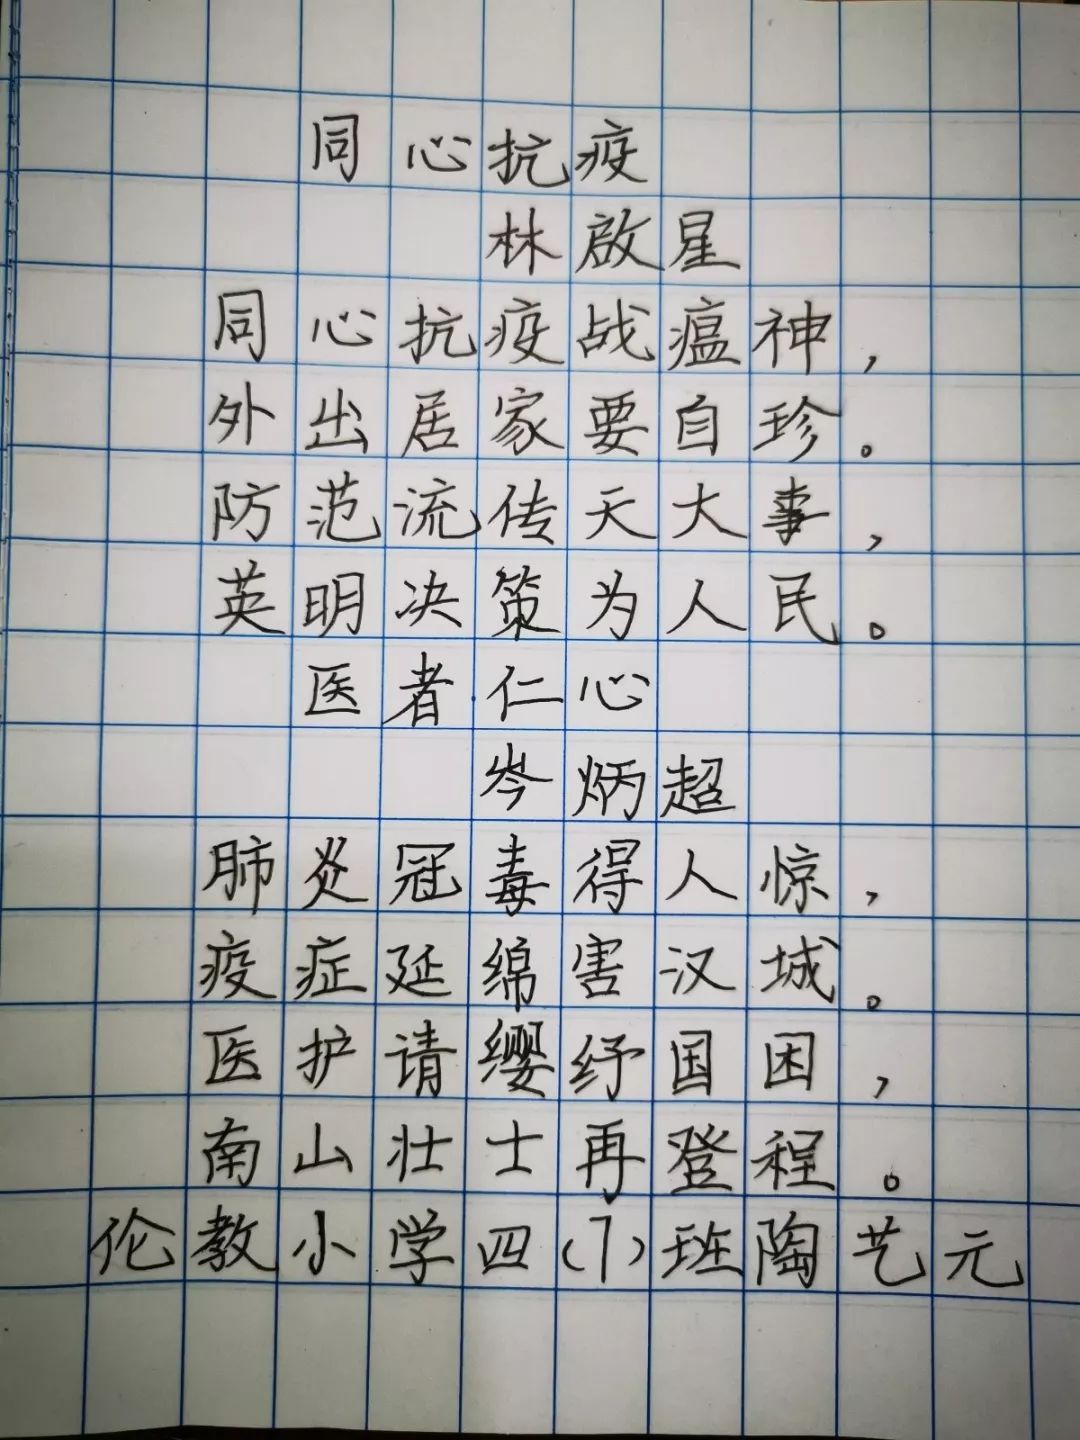 同心抗疫
林啟星
同心抗疫战瘟神，
外出居家要自珍。
防范流传天大事，
英明决策为人民。
医者仁心
岑炳超
肺炎冠毒得人惊，
疫症延绵害汉城。
医护请缨纾国困，
南山壮士再登程。
伦教小学四(1)班陶艺元